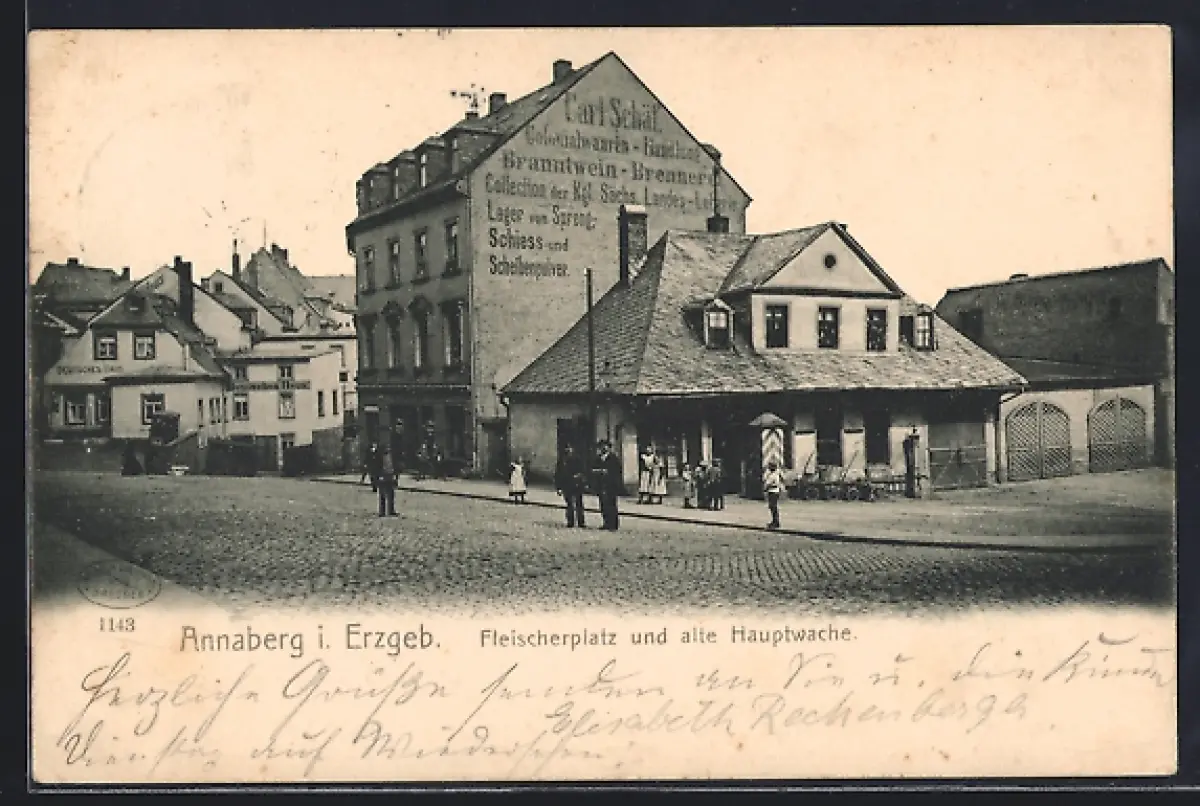 Carl Schäf.
Colonialwaaren-Handlung
Branntwein-Brennerei
Collection der Kgl. Sächs. Landes-Lotterie
Lager von Spreng-
Schiess- und
Scheibenpulver.
DEUTSCHES HAUS
1143
Annaberg i. Erzgeb. Fleischerplatz und alte Hauptwache.
Herzliche Grüße senden an Sie u. die
Elisabeth Rechenberg
Dienstag auf Wiedersehen